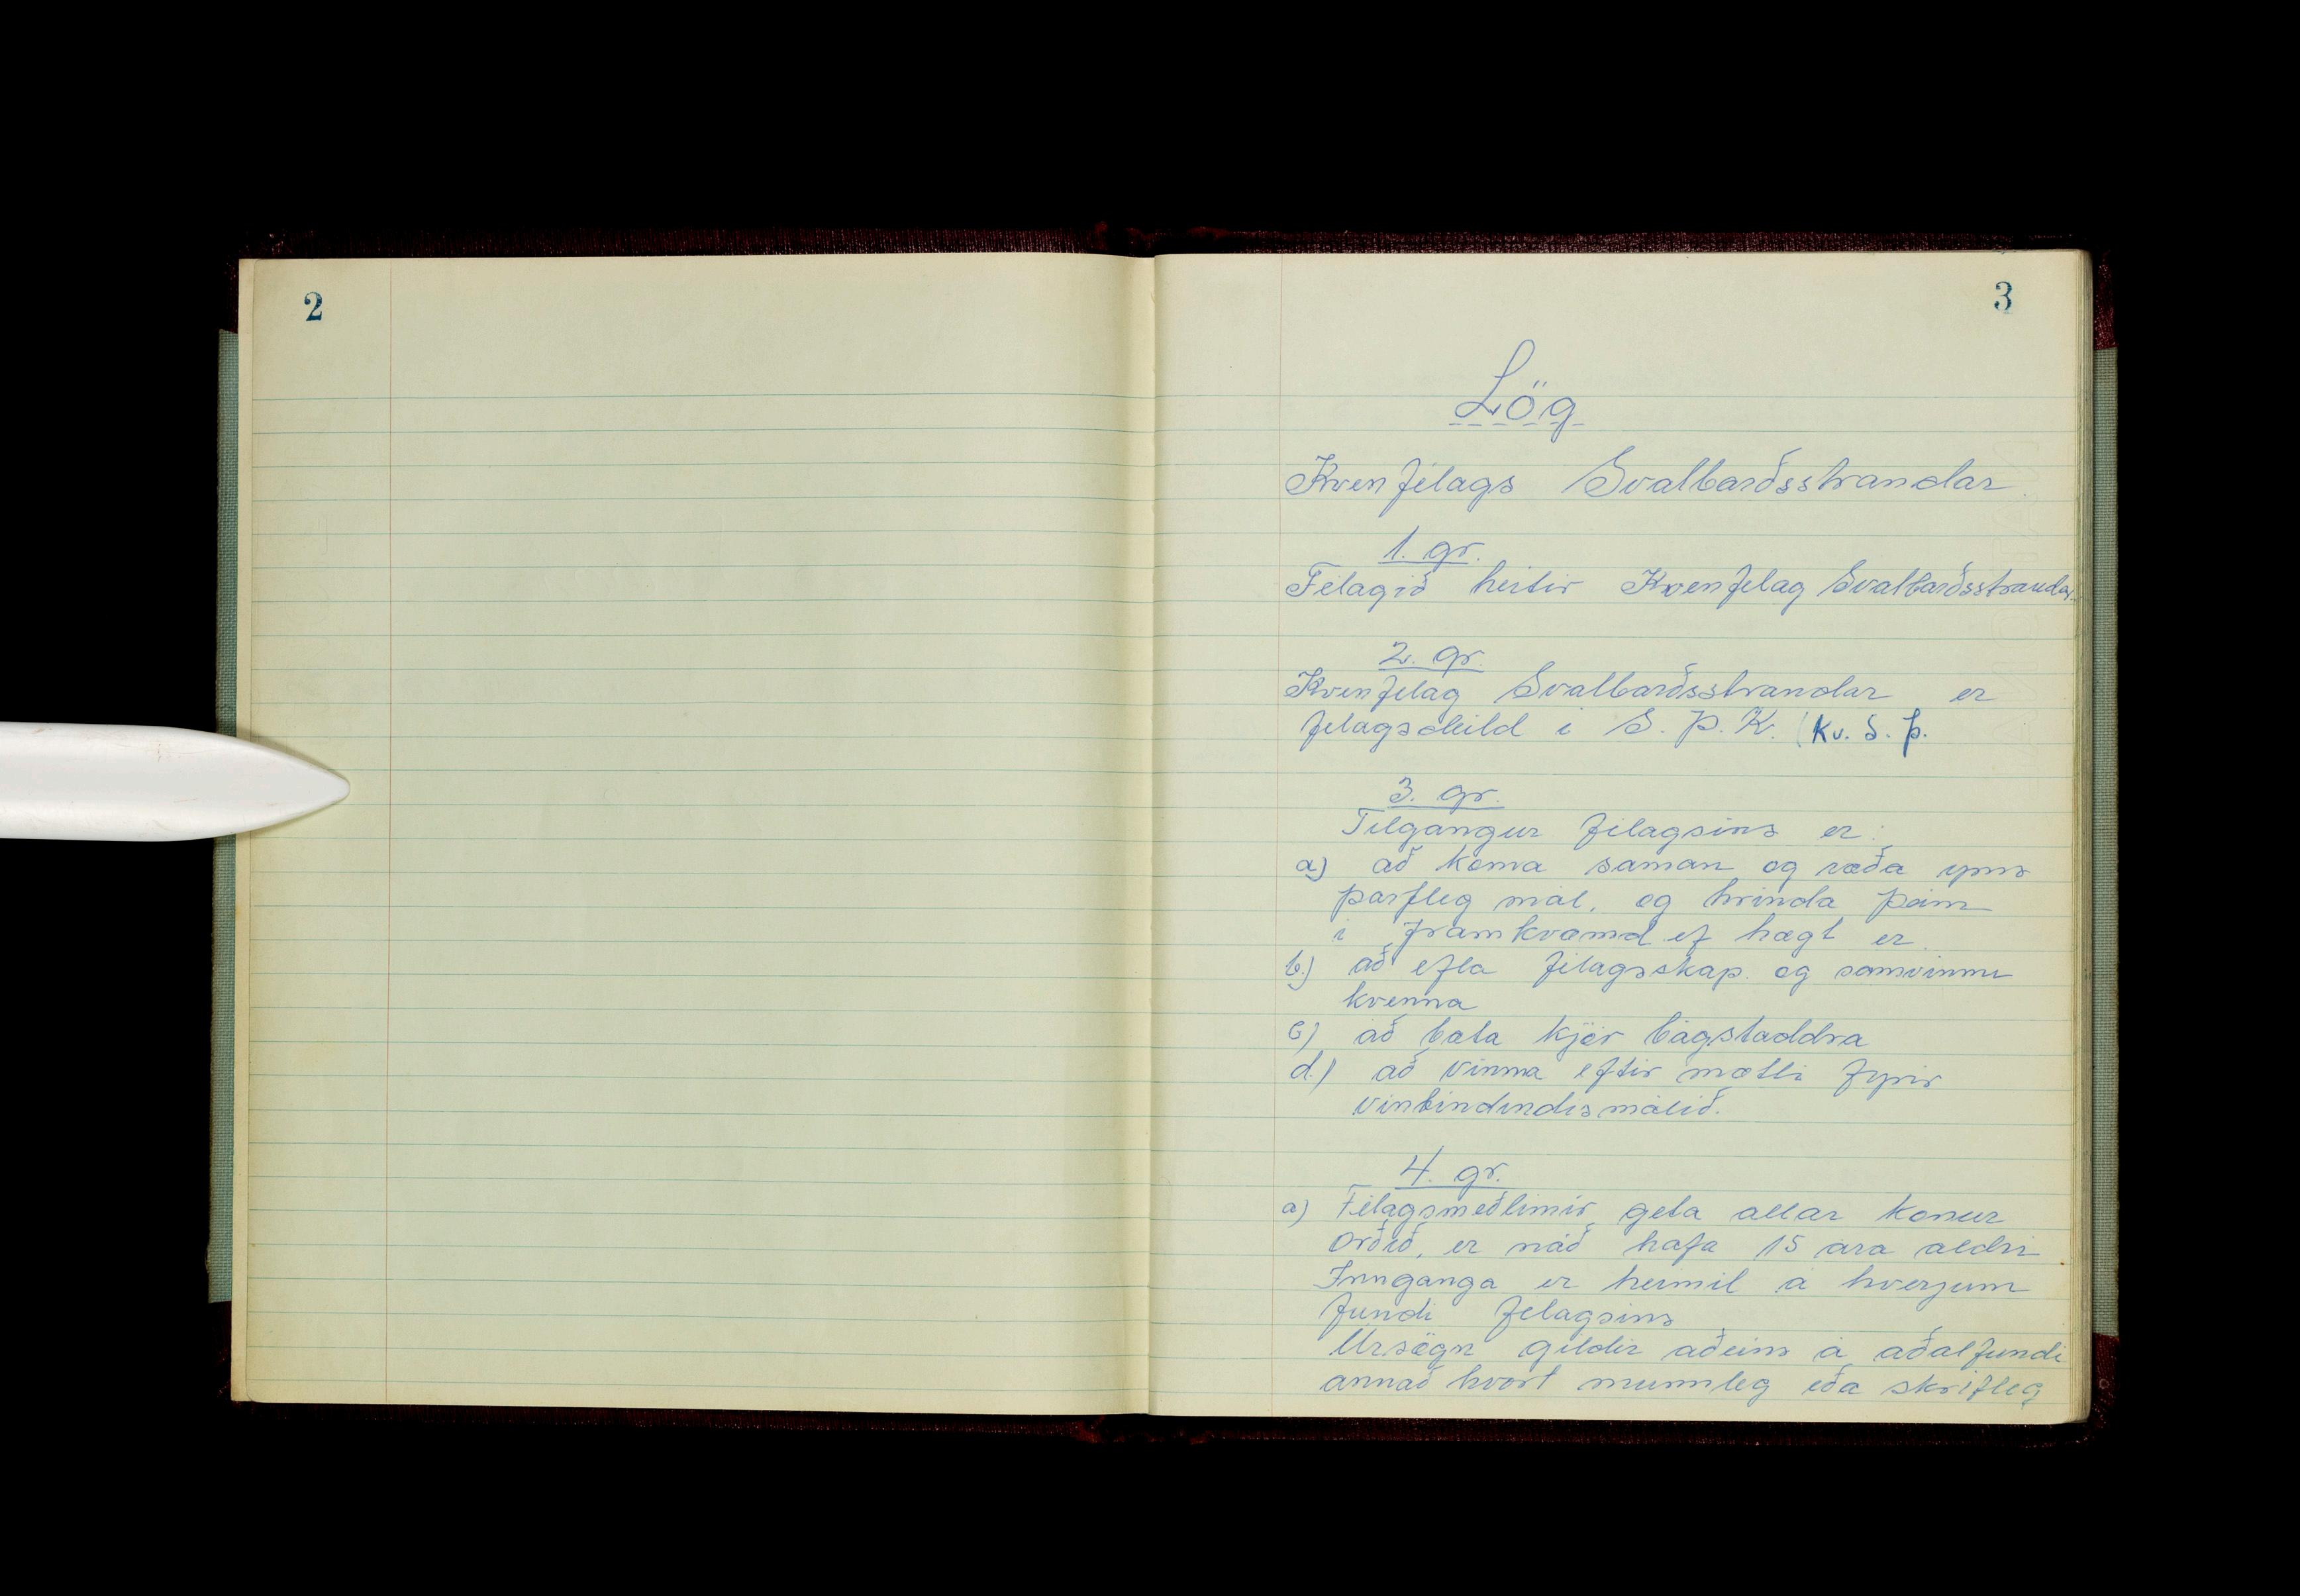 2
3
Lög
Kvenfélags Svalbarðsstrandar.
1. gr.
Félagið heitir Kvenfélag Svalbarðsstrandar.
2. gr.
Kvenfélag Svalbarðsstrandar er
félagsdeild i S. Þ. K. (Kv. S. Þ.
3. gr.
Tilgangur félagsins er:
a) að koma saman og ræða yms
þarfleg mál, og hrinda þeim
i framkvæmd ef hægt er.
b.) að efla félagsskap og samvinnu
kvenna
c) að bæta kjör bágstaddra
d.) að vinna eftir mætti fyrir
vinbindindismálið.
4. gr.
a) Félagsmeðlimir geta allar konur
orðið, er náð hafa 15 ára aldri
Innganga er heimil á hverjum
fundi félagsins
Úrsögn gildir aðeins á aðalfundi
annað hvort munnleg eða skrifleg